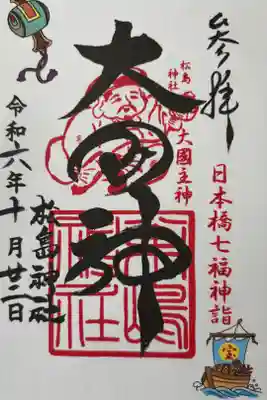 参拝
日本橋七福神詣
松島
神社
大國主神
大国神
松島神社
令和六年十月廿三日
松島神社
宝